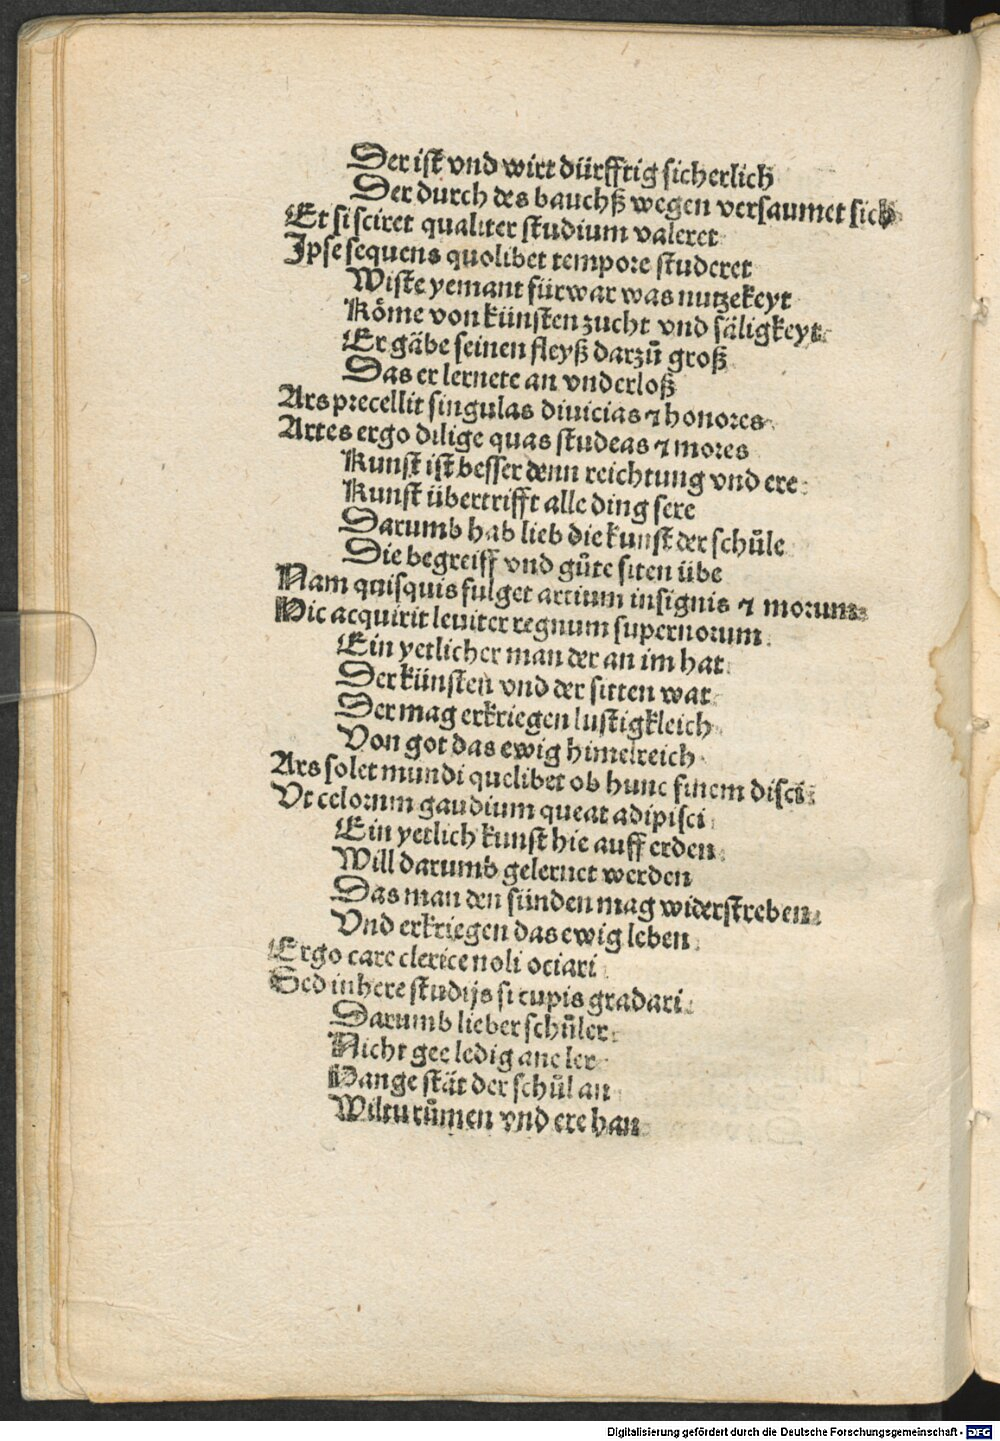 Der ist vnd wirt dürfftig sicherlich
Der durch des bauchß wegen versaumet sich
Et si sciret qualiter studium valeret
Ipse sequens quolibet tempore studeret
Wiste yemant fürwar was nutzekeyt
Köme von künsten zucht vnd säligkeyt
Er gäbe seinen fleyß darzů groß
Das er lernete an vnderloß
Ars precellit singulas diuicias ⁊ honores
Artes ergo dilige quas studeas ⁊ mores
Kunst ist besser denn reichtung vnd ere
Kunst übertrifft alle ding sere
Darumb hab lieb die kunst der schůle
Die begreiff vnd gůte siten übe
Nam quisquis fulget artium insignis ⁊ morum
Hic acquirit leuiter regnum supernorum
Ein yetlicher man der an im hat
Der künsten vnd der sitten wat
Der mag erkriegen lustigkleich
Von got das ewig himelreich
Ars solet mundi quelibet ob hunc finem disci
Vt celorum gaudium queat adipisci
Ein yetlich kunst hie auff erden
Will darumb gelernet werden
Das man den sünden mag widerstreben
Vnd erkriegen das ewig leben
Ergo care clerice noli ociari
Sed inhere studijs si cupis gradari
Darumb lieber schůler
Nicht gee ledig ane ler
Hange stät der schůl an
Wiltu růmen vnd ere han
Digitalisierung gefördert durch die Deutsche Forschungsgemeinschaft - DFG